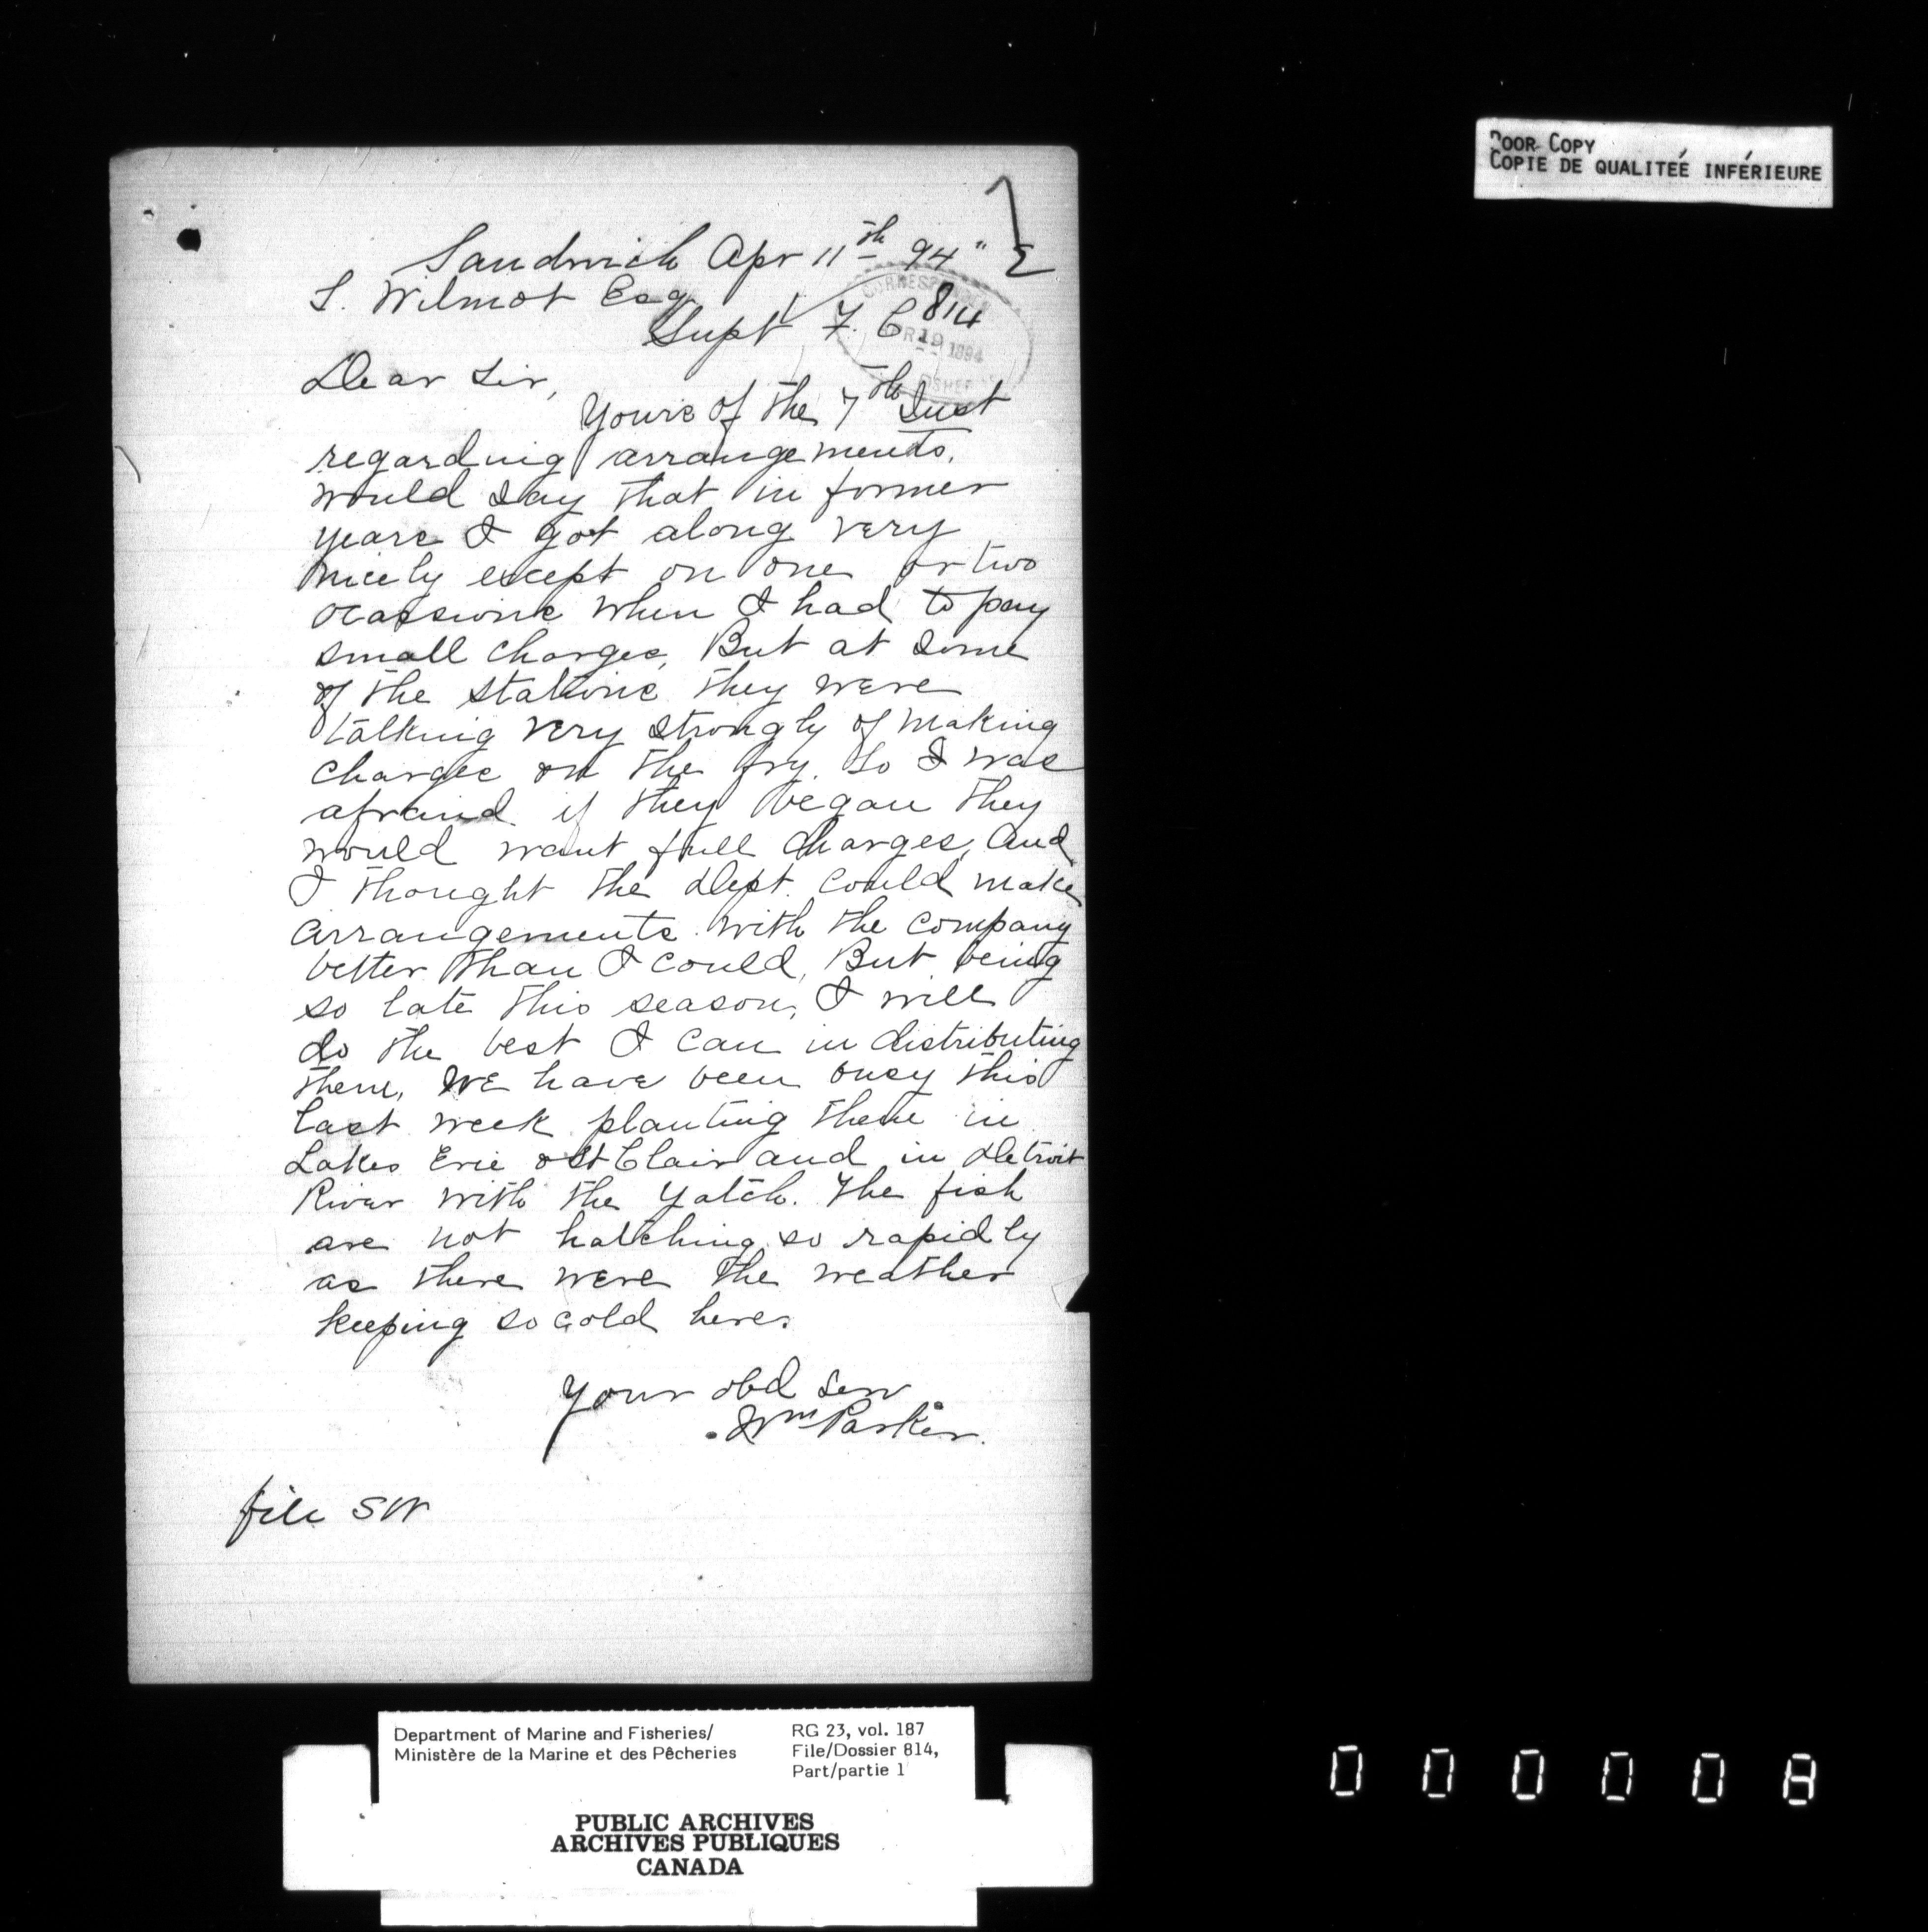 POOR COPY
COPIE DE QUALITEÉ INFÉRIEURE
Sandwich Apr 11th 94"
S. Wilmot Esq
Supt F. C
814
CORRESPONDENCE
APR 19 1894
FISHERIES
Dear Sir,
Yours of the 7th Inst
regarding arrangements,
would say that in former
years I got along very
nicely except on one or two
ocassions when I had to pay
small charges, But at some
of the stations they were
talking very strongly of making
charges on the fry. So I was
afraid if they began they
would want full charges, and
I thought the Dept. could make
arrangements with the company
better than I could, But being
so late this season, I will
do the best I can in distributing
them, We have been busy this
last week planting them in
Lakes Erie & St Clair and in Detroit
River with the Yatch. The fish
are not hatching so rapidly
as there were the weather
keeping so cold here.
Your obd serv
Wm Parker.
file SW
Department of Marine and Fisheries/
Ministère de la Marine et des Pêcheries
RG 23, vol. 187
File/Dossier 814,
Part/partie 1
PUBLIC ARCHIVES
ARCHIVES PUBLIQUES
CANADA
000008